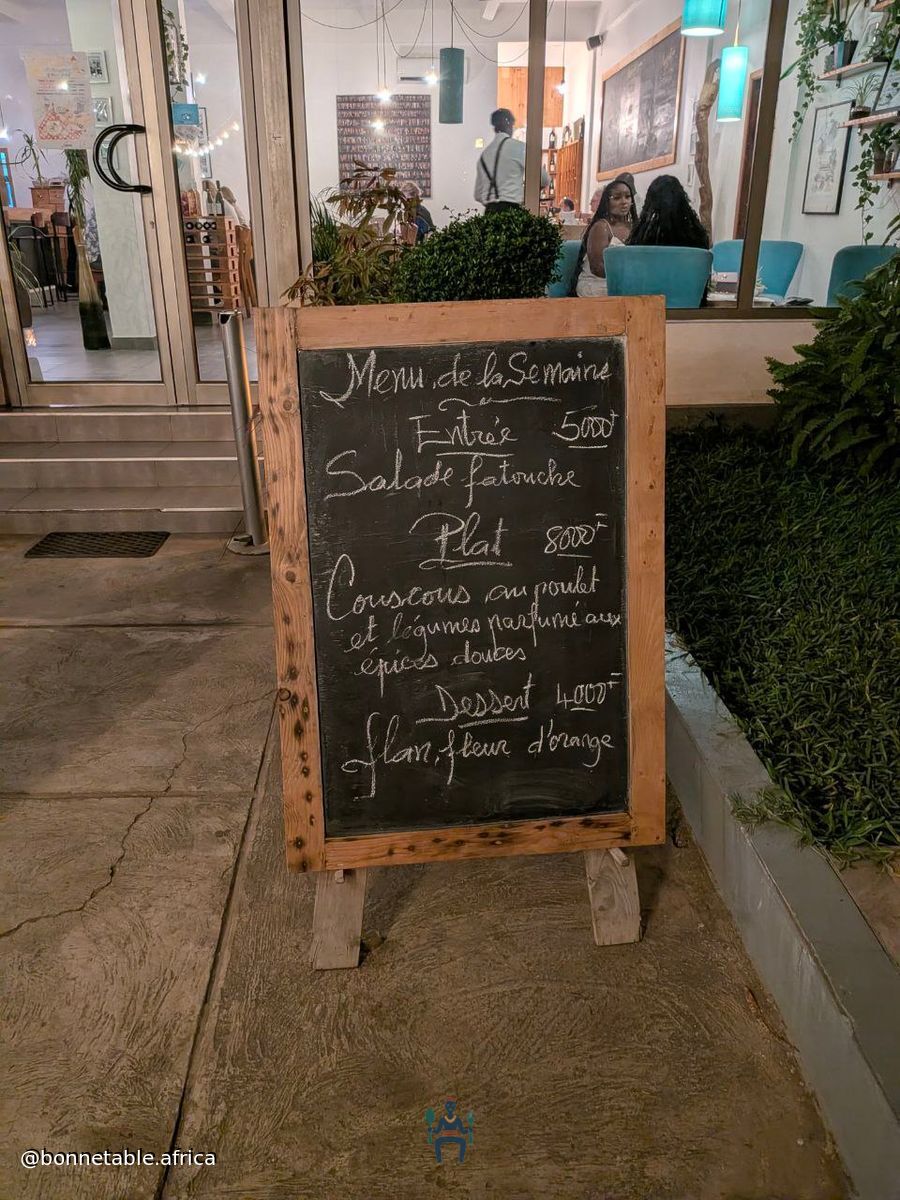 Menu de la Semaine
Entrée 5000F
Salade fatouche
Plat 8000F
Couscous au poulet
et légumes parfumé aux
épices douces
Dessert 4000F
flan, fleur d'orange
@bonnetable.africa